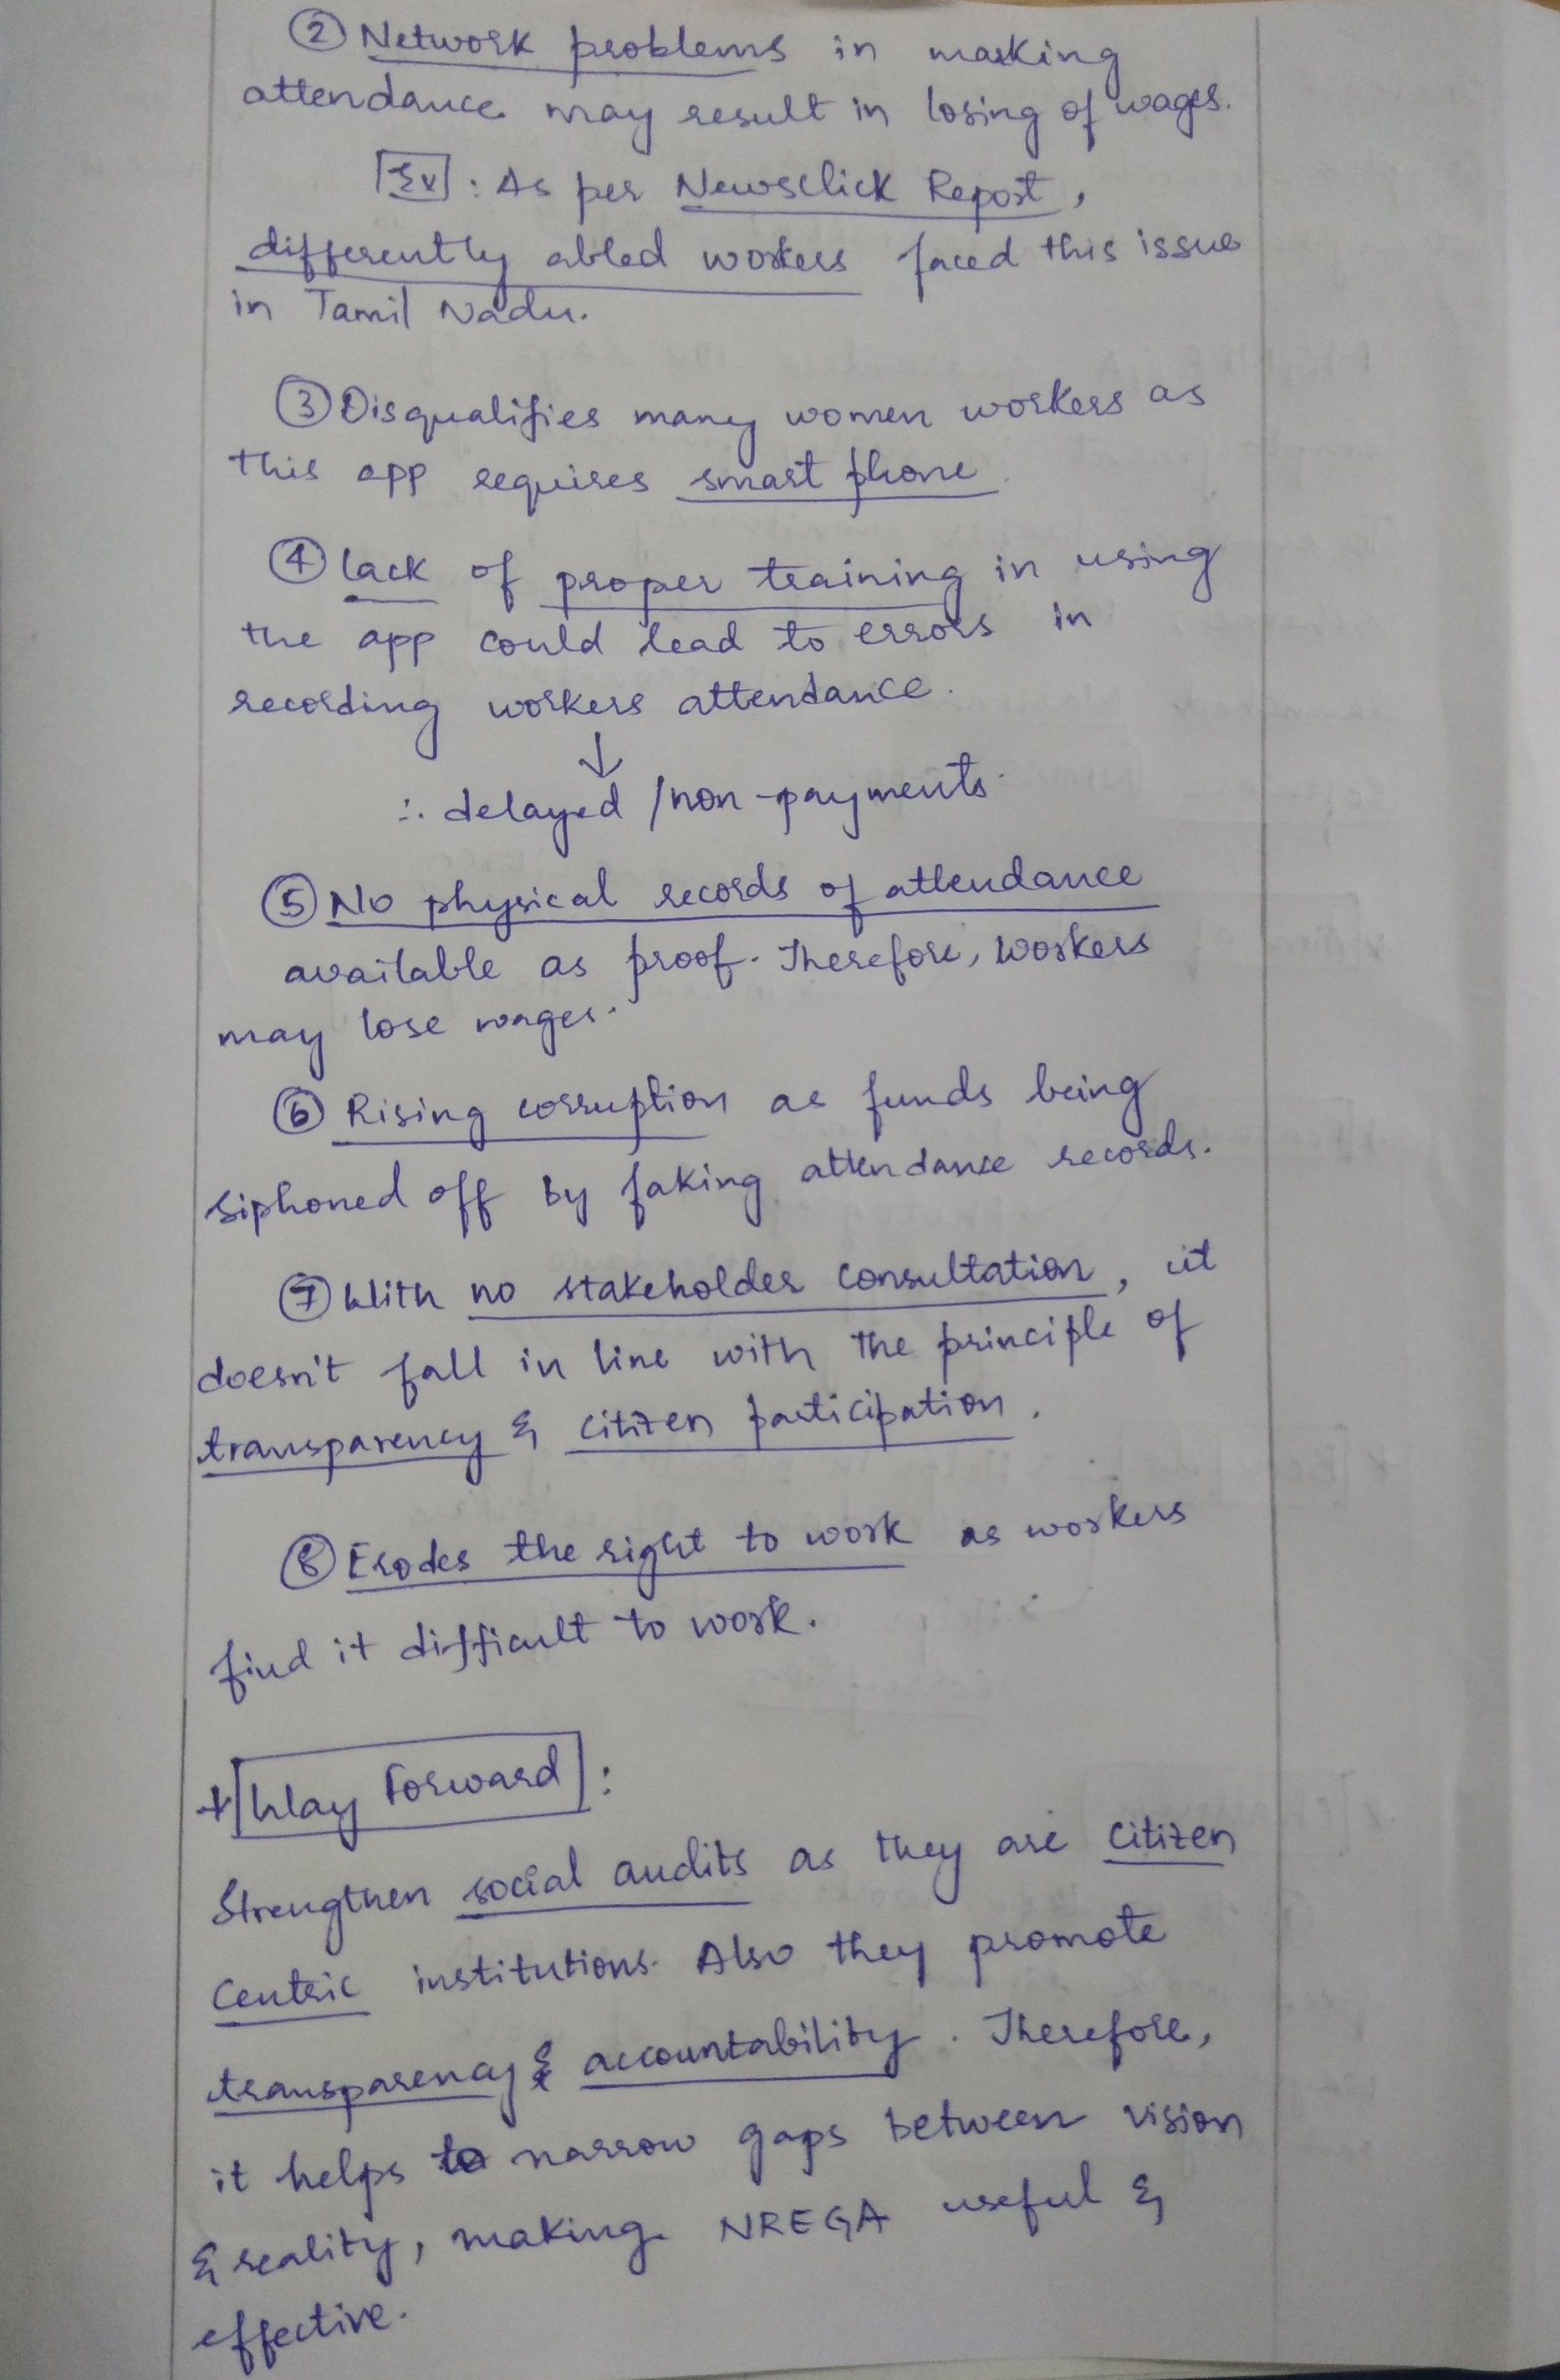 ② Network problems in marking
attendance may result in losing of wages.
Ex : As per Newsclick Report,
differently abled workers faced this issue
in Tamil Nadu.
③ Disqualifies many women workers as
this app requires smart phone.
④ lack of proper training in using
the app could lead to errors in
recording workers attendance.
↓
∴ delayed / non-payments.
⑤ No physical records of attendance
available as proof. Therefore, workers
may lose wages.
⑥ Rising corruption as funds being
siphoned off by faking attendance records.
⑦ With no stakeholder consultation, it
doesn't fall in line with the principle of
transparency & citizen participation.
⑧ Erodes the right to work as workers
find it difficult to work.
* Way Forward :
Strengthen social audits as they are citizen
centric institutions. Also they promote
transparency & accountability. Therefore,
it helps to narrow gaps between vision
& reality, making NREGA useful &
effective.